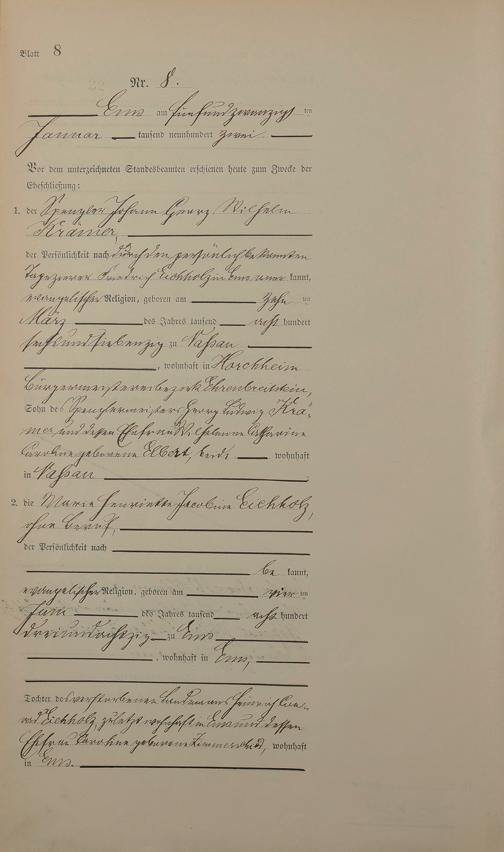 Blatt 8
Nr. 8.
Ems am fünfundzwanzigsten
Januar tausend neunhundert zwei
Vor dem unterzeichneten Standesbeamten erschienen heute zum Zwecke der
Eheschließung:
1. der Spengler Johann Georg Wilhelm
Krämer,
der Persönlichkeit nach durch den persönlich bekannten
Tapezierer Friedrich Eichholz in Ems aner kannt,
evangelischer Religion, geboren am zehn ten
März des Jahrs tausend acht hundert
sechsundsiebenzig zu Nassau
, wohnhaft in Horchheim
Bürgermeistereibezirk Ehrenbreitstein,
Sohn des Spenglermeisters Georg Ludwig Krä-
mer und dessen Ehefrau Wilhelmine Catharine
Caroline geborene Elbert, beide wohnhaft
in Nassau
2. die Marie Henriette Jacobine Eichholz,
ohne Beruf,
der Persönlichkeit nach
be kannt,
evangelischer Religion, geboren am vier ten
Juni des Jahrs tausend acht hundert
dreiundachtzig zu Ems
, wohnhaft in Ems,
Tochter des verstorbenen Heinrich Con-
rad Eichholz, zuletzt wohnhaft in Ems und dessen
Ehefrau Caroline geborene wohnhaft
in Ems.